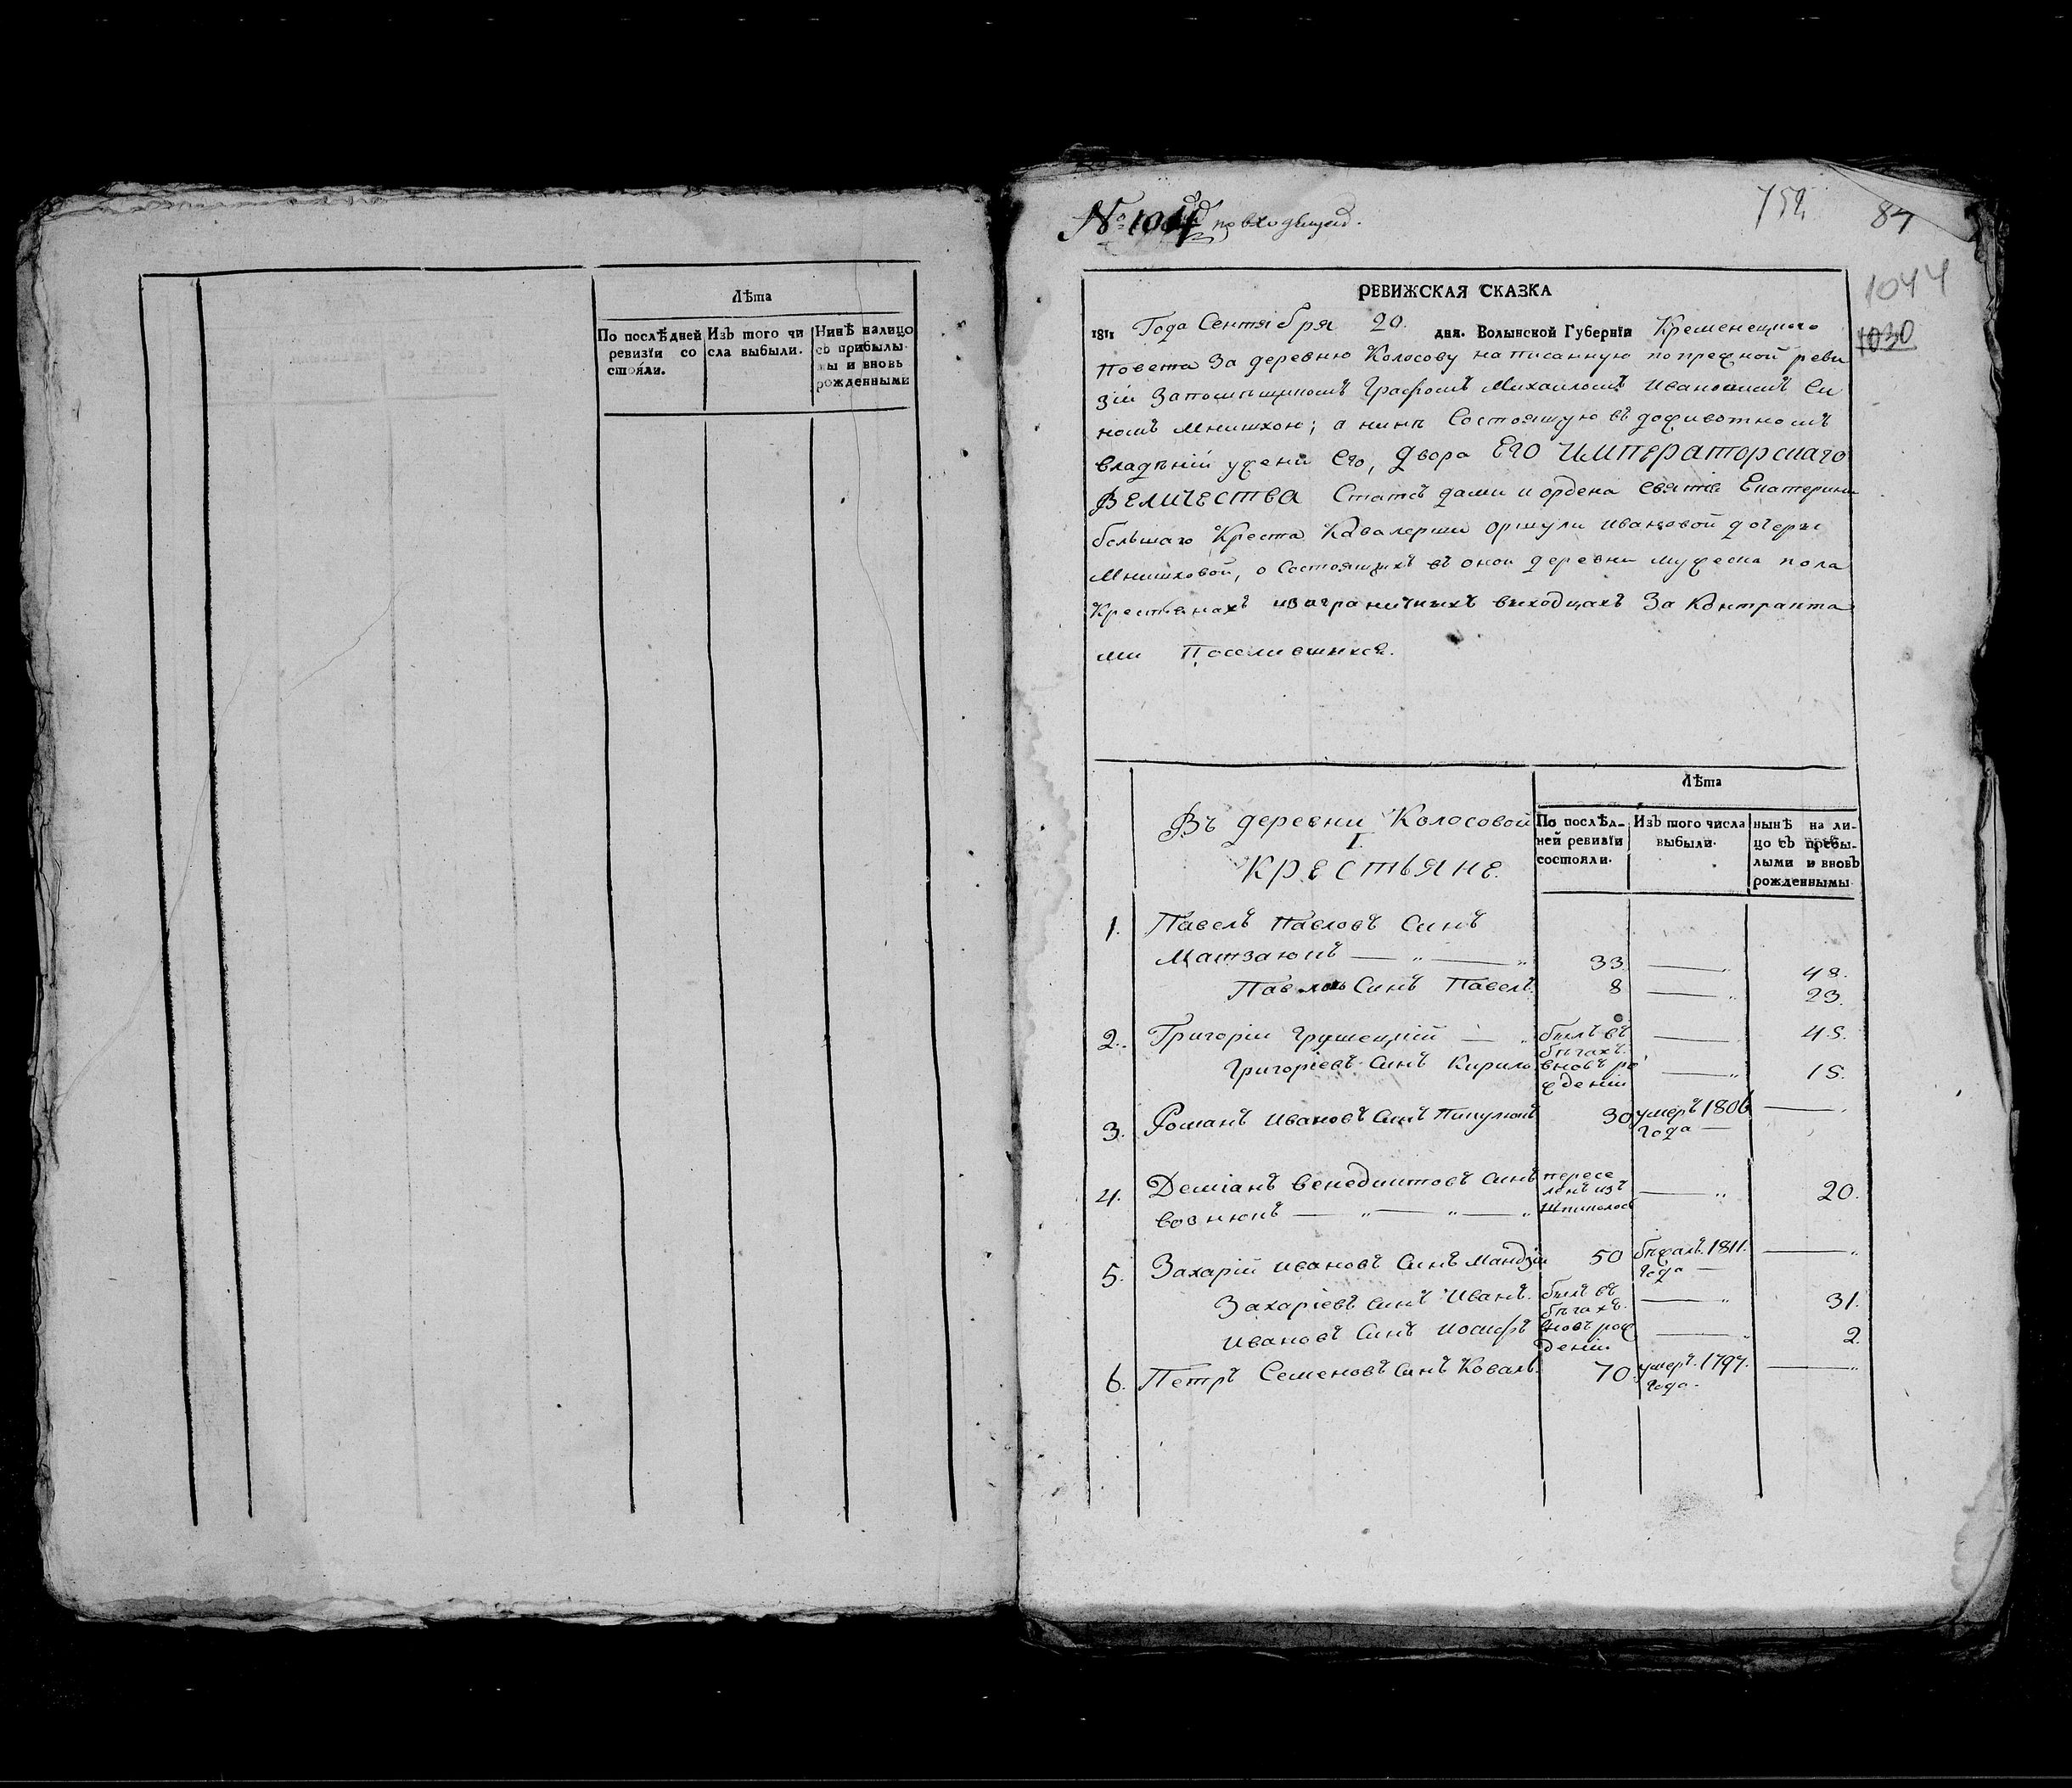 Лѣта
По послѣдней ревизїи со стояли.
Изъ того чи сла выбыли.
Нинѣ налицо съ прибылы мы и вновь рожденными
по входящей.
759.
84
1044
1030
РЕВИЖСКАЯ СКАЗКА
1811 Года Сентября 20. дня. Волынской Губернїи Кременецкаго
повета За деревню Колосову написанную попрежной реви
зіи Запомѣщикомъ Графомъ Михаиломъ Ивановимъ Си
номъ Мнишхою; а нинѣ Состоящую въ доживотномъ
владѣніи Ужени Его, Двора ЕГО ИМПЕРАТОРСКАГО
ВЕЛИЧЕСТВА Статсъ дами и ордена Святія Екатерини
большаго Креста Кавалерши Оршули Ивановой дочери
Мнишховой, о Состоящихъ въ оной деревни мужеска пола
Крестьянахъ изаграничнихъ виходцахъ За Контракта
ми Поселившихся.
Лѣта
Въ деревни Колосовой
I.
КРЕСТЬЯНЕ.
По послѣд- ней ревизїи состояли.
Изъ того числа выбыли.
нынѣ на ли- цо съ прибы- лыми и вновъ рожденнымы
1. Павелъ Павловъ Синъ
Матзаюкъ — „ — „ 33. — „ 48.
Павловъ Синъ Павелъ. 8 — „ 23.
2. Григорій Грушецкій — „ билъ въ бѣгахъ. — „ 45.
Григоріевъ Синъ Кирило вновъ ро жденій — „ 15.
3. Романъ Ивановъ Синъ 30 умеръ 1806 года — — „
4. Деміанъ Венедиктовъ Синъ пересе ленъ изъ
Вознюкъ — „ — „ — „ — „ 20.
5. Захарій Ивановъ Синъ Мандзій 50 бѣжалъ. 1811. года — — „
Захаріевъ Синъ Иванъ. билъ въ бѣгахъ. — „ 31.
Ивановъ Синъ Иосифъ вновъ рож деній — „ 2.
6. Петръ Семеновъ Синъ Коваль. 70. умеръ. 1797. года. — „